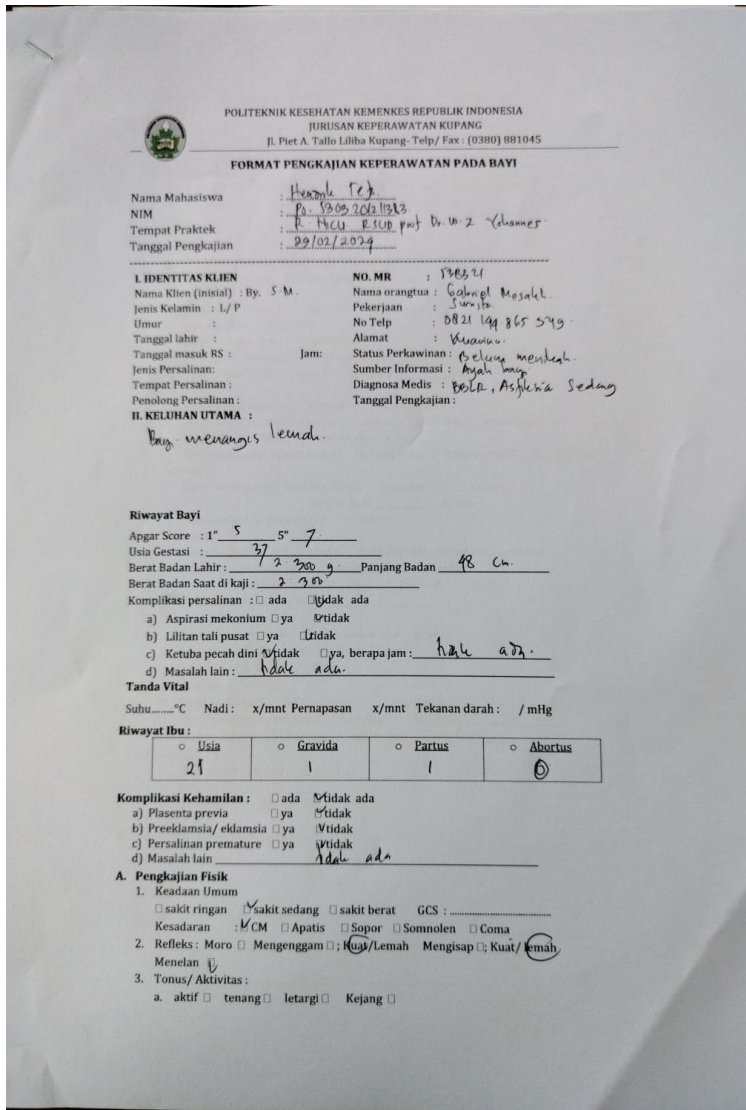 POLITEKNIK KESEHATAN KEMENKES REPUBLIK INDONESIA
JURUSAN KEPERAWATAN KUPANG
Jl. Piet A. Tallo Liliba Kupang- Telp/ Fax : (0380) 881045
FORMAT PENGKAJIAN KEPERAWATAN PADA BAYI
Nama Mahasiswa :
NIM :
Tempat Praktek : R. NICU RSUD prof Dr. W. Z Yohannes
Tanggal Pengkajian : 29/02/2024
I. IDENTITAS KLIEN NO. MR :
Nama Klien (inisial) : By. S M. Nama orangtua : Gabriel
Jenis Kelamin : L/ P Pekerjaan : Swasta
Umur : No Telp : 0821 144 865 549
Tanggal lahir : Alamat :
Tanggal masuk RS : Jam: Status Perkawinan : Belum menikah.
Jenis Persalinan: Sumber Informasi : Ayah bayi
Tempat Persalinan : Diagnosa Medis : BBLR, Asfiksia Sedang
Penolong Persalinan : Tanggal Pengkajian :
II. KELUHAN UTAMA :
Bayi menangis lemah.
Riwayat Bayi
Apgar Score : 1" 5 5" 7
Usia Gestasi : 37
Berat Badan Lahir : 2 300 g. Panjang Badan 48 cm.
Berat Badan Saat di kaji : 2 300
Komplikasi persalinan : □ ada ☑ tidak ada
a) Aspirasi mekonium □ ya ☑ tidak
b) Lilitan tali pusat □ ya ☑ tidak
c) Ketuba pecah dini ☑ tidak □ ya, berapa jam : tidak ada.
d) Masalah lain : tidak ada.
Tanda Vital
Suhu........°C Nadi : x/mnt Pernapasan x/mnt Tekanan darah : / mHg
Riwayat Ibu :
○ Usia ○ Gravida ○ Partus ○ Abortus
21 1 1 0
Komplikasi Kehamilan : □ ada ☑ tidak ada
a) Plasenta previa □ ya ☑ tidak
b) Preeklamsia/ eklamsia □ ya ☑ tidak
c) Persalinan premature □ ya ☑ tidak
d) Masalah lain tidak ada
A. Pengkajian Fisik
1. Keadaan Umum
□ sakit ringan ☑ sakit sedang □ sakit berat GCS : ........................
Kesadaran : ☑ CM □ Apatis □ Sopor □ Somnolen □ Coma
2. Refleks : Moro □ Mengenggam □ ; Kuat/Lemah Mengisap □; Kuat/ lemah
Menelan ☑
3. Tonus/ Aktivitas :
a. aktif □ tenang □ letargi □ Kejang □